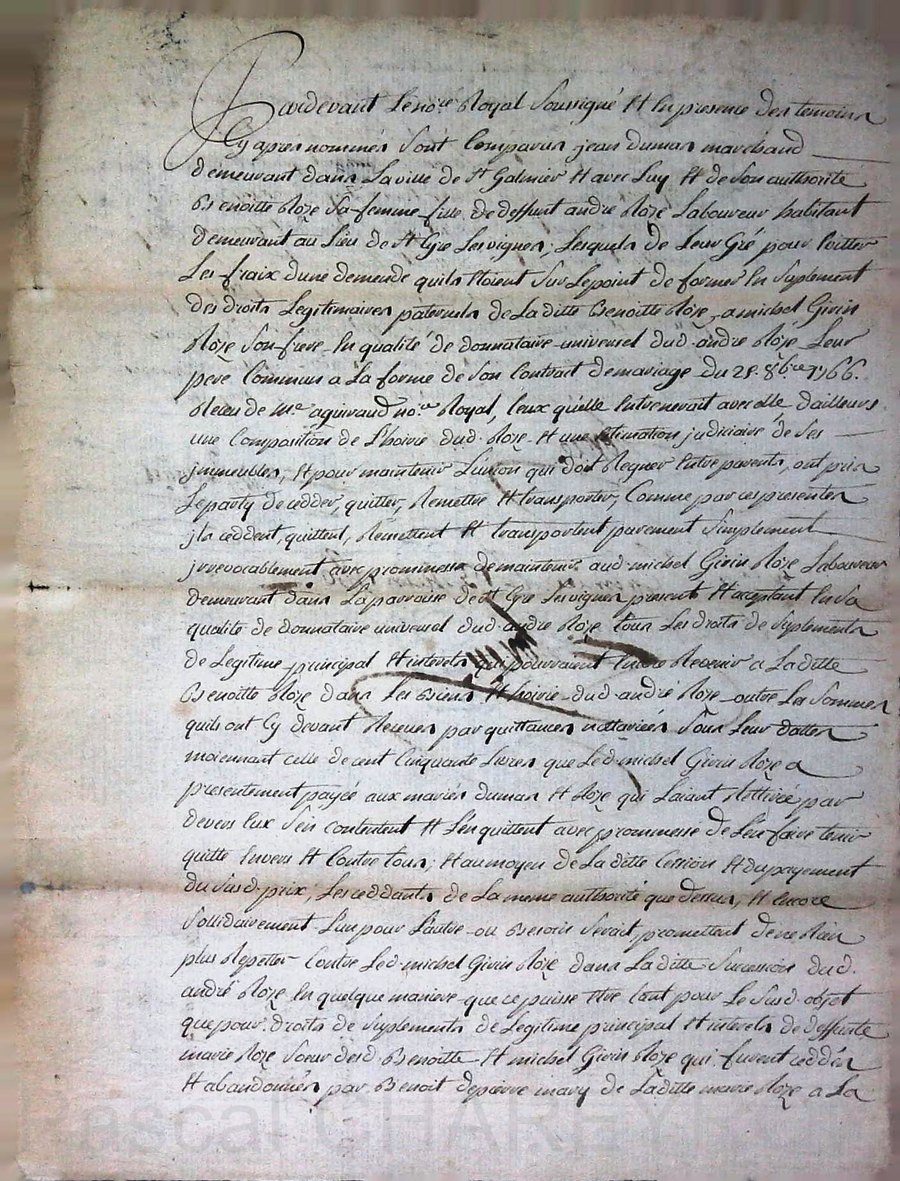 Pardevant Le no.re Royal Soussigné Et En presence des temoins
Cy apres nommés Sont Comparus jean dumas marchand
demeurant dans La ville de St Galmier Et avec Luy Et de Son authorité
Benoitte Roze Sa femme fille de deffunt andré Roze Laboureur habitant
demeurant au Lieu de St Cyre Les vignes, Lesquels de Leur Gré pour Eviter
Les fraix dune demende quils Etoient Sur Le point de former En Suplement
des droits Legitimaires paternels de La ditte Benoitte Roze, a michel Givin
Roze Son frere En qualité de donnataire universel dud. andre Roze Leur
pere Commun a La forme de Son Contract de mariage du 28. 8b.re 1766.
Receu de me aguiraud no.re Royal, Ceux qu'elle Entrenerait avec elle d'ailleurs
une Composition de L'hoirie dud. Roze Et une Estimation judiciaire de Ses
jmmeubles, Et pour maintenir L'union qui doit Regner Entre parents, ont pris
Le party de cedder, quitter, Remettre Et transporter, Comme par ces presentes
jls ceddent, quittent, Remettent Et transportent purement Simplement
jrrevocablement avec prommesse de maintenir aud. michel Givin Roze Laboureur
demeurant dans La parroisse de St Cyre Les vignes present Et acceptant En Sa
qualité de donnataire universel dud. andre Roze tous Les droits de Suplements
de Legitime principal Et interets qui pourraient Encore Revenir a La ditte
Benoitte Roze dans Les Biens Et hoirie dud. andré Roze outre Les Sommes
quils ont Cy devant Receues par quittances nottariées Sous Leur dattes
moiennant celle de cent Cinquante Livres que Led. michel Givin Roze a
presentement payée aux mariés dumas Et Roze qui L'aiant Rettirée par
devers Eux S'en contentent Et L'en quittent avec prommesse de L'en faire tenir
quitte Envers Et Contre tous; Et au moyen de La ditte Cession Et du payement
du Susd. prix, Les ceddants de La meme authorité que dessus, Et Encore
Sollidairement L'un pour L'autre ou Besoin Serait, promettent de ne Rien
plus Repetter Contre Led. michel Givin Roze dans La ditte Sucession dud.
andré Roze En quelque maniere que ce puisse Etre tant pour Le Susd. objet
que pour droits de Suplements de Legitime principal Et interets de deffunte
marie Roze Soeur desd. Benoitte Et michel Givin Roze qui furent ceddés
Et abandonnés par Benoit depierre mary de La ditte marie Roze a La
Pascal CHAREYRON